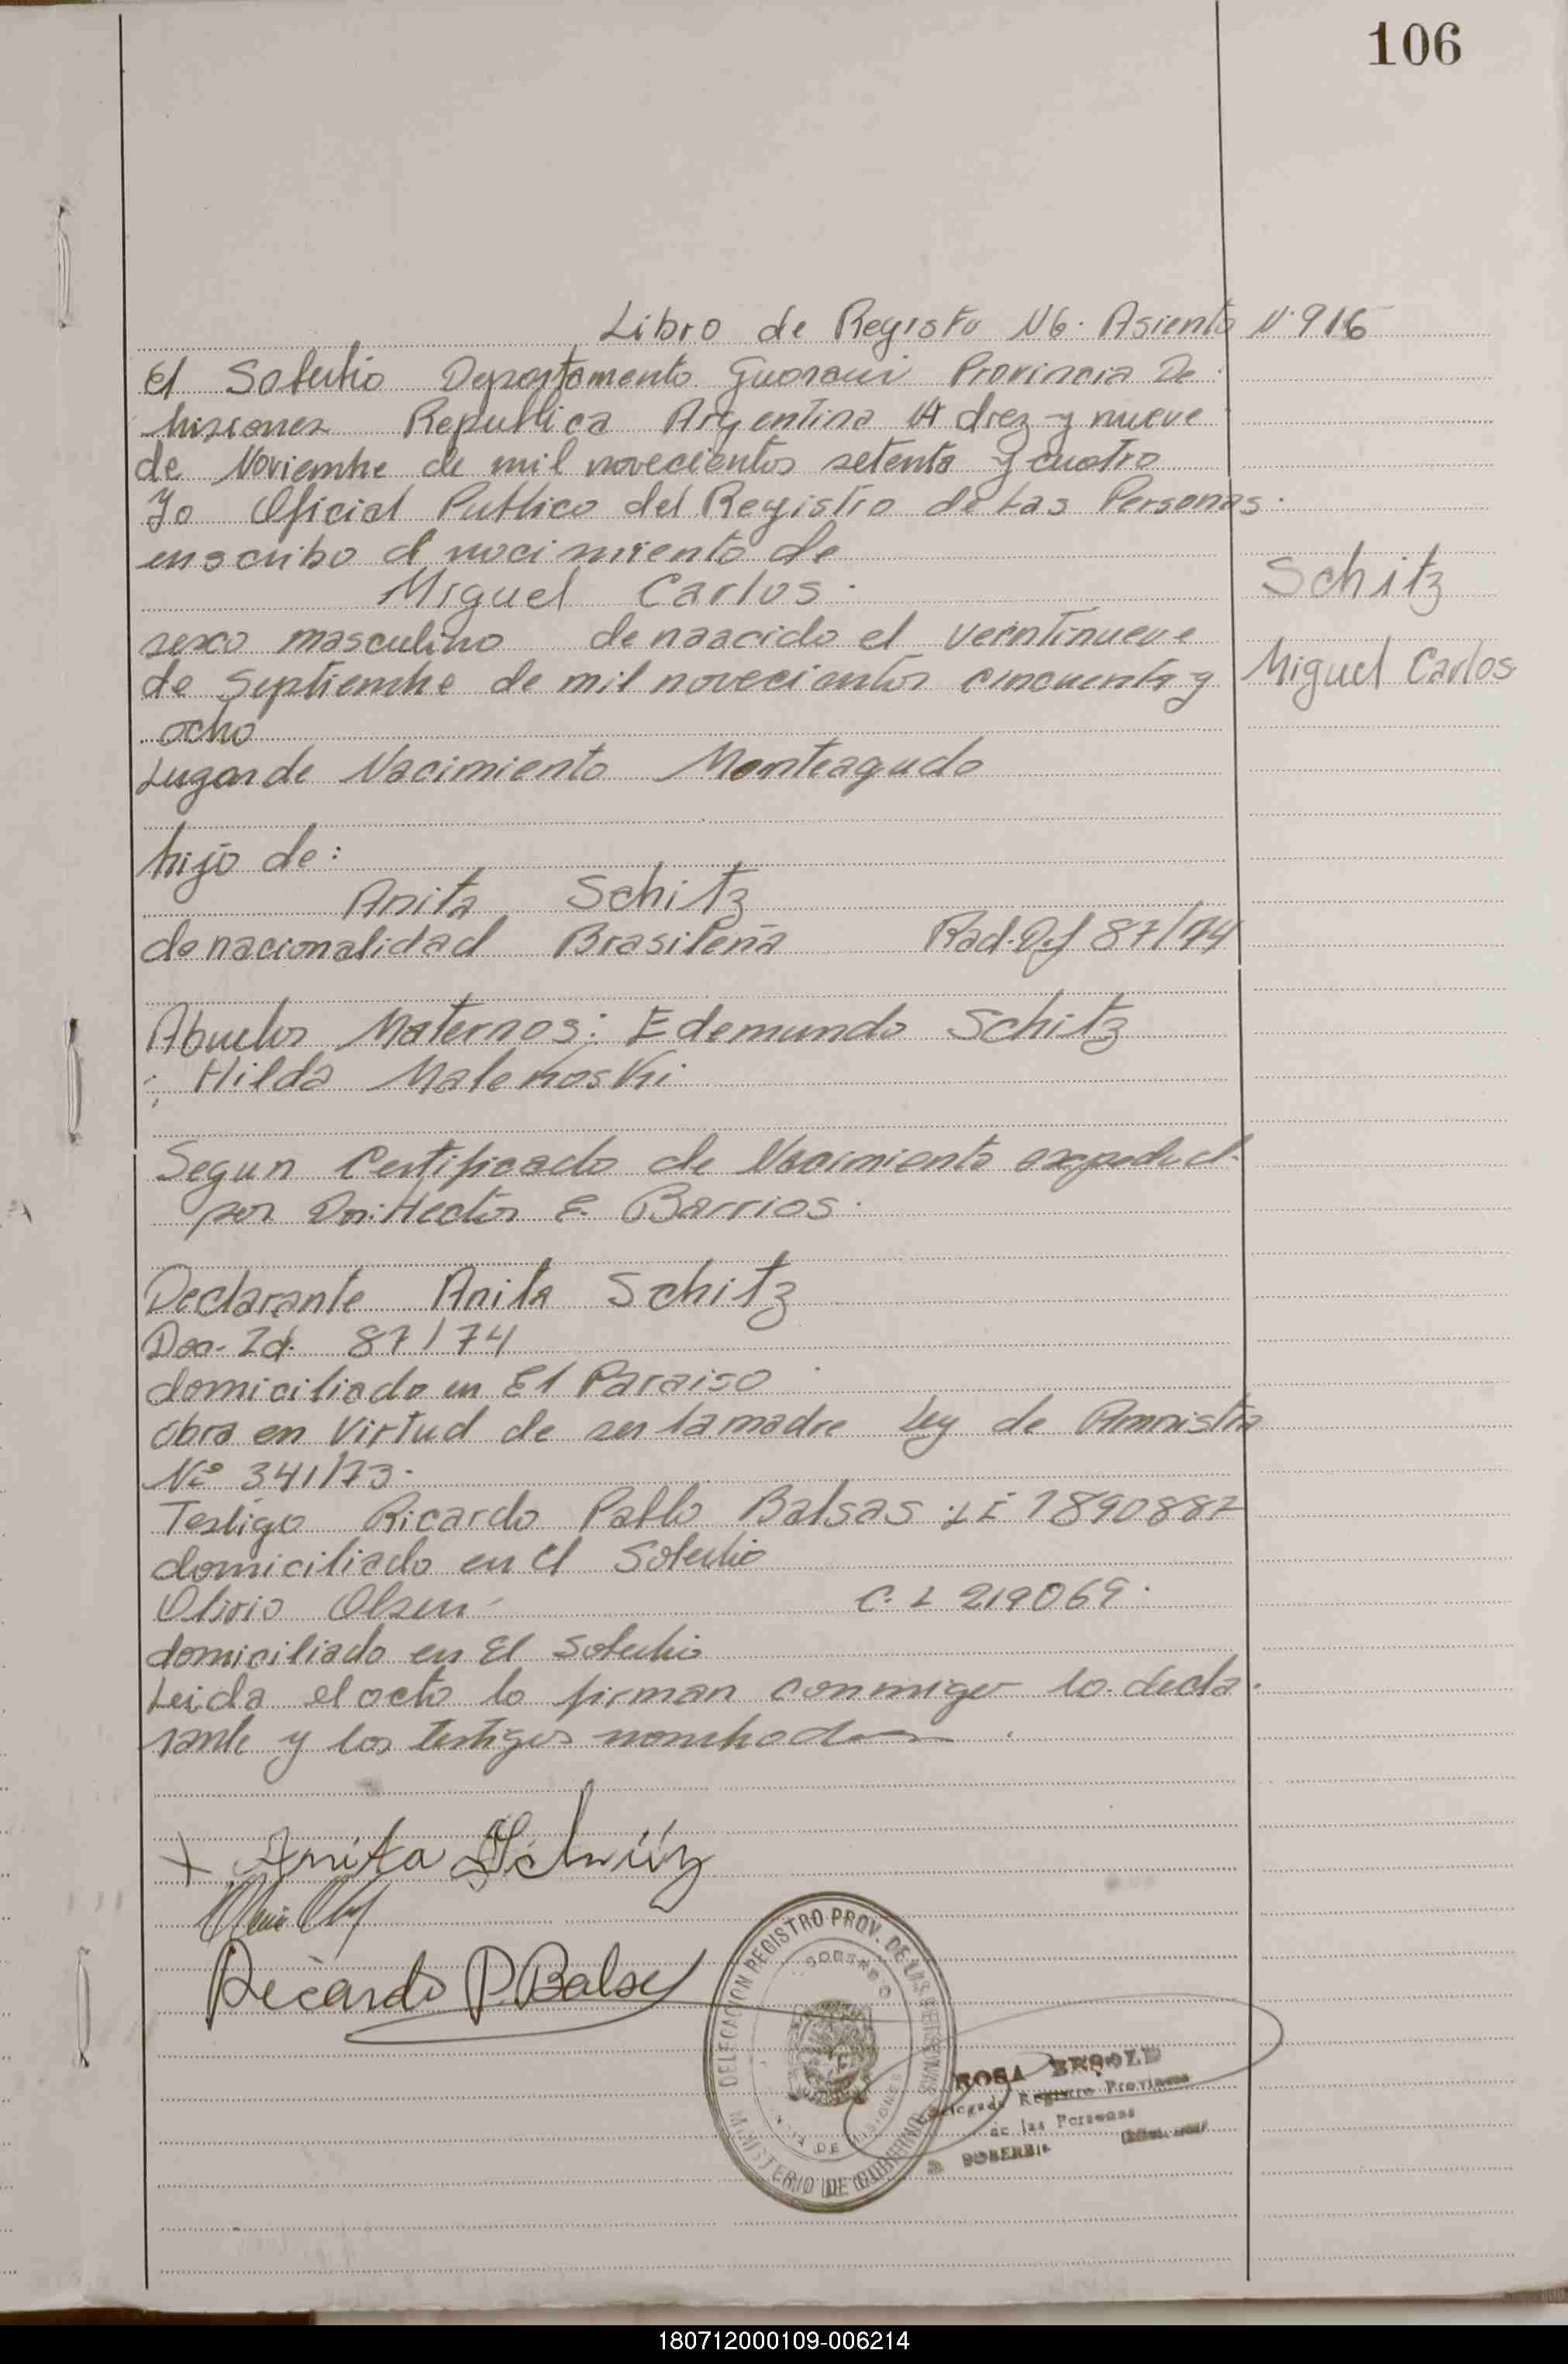 106
Libro de Registro N6. Asiento N° 916
El Soberbio Departamento Guarani Provincia De
Misiones Republica Argentina A diez y nueve
de Noviembre de mil novecientos setenta y cuatro
Yo Oficial Publico del Registro de Las Personas.
enscribo el nacimiento de
Miguel Carlos.
Schitz
sexo masculino de naacido el veintinueve
de Septiembre de mil novecientos cincuenta y
Miguel Carlos
ocho
Lugar de Nacimiento Monteagudo
hijo de:
Anita Schitz
de nacionalidad Brasileña Rad. Def 87/74
Abuelos Maternos: Edemundo Schitz
: Hilda Malenoski
Segun Certificado de Nacimiento expedid.
por Dr: Hector E. Barrios.
Declarante Anita Schitz
Doc. Id. 87/74
domiciliado en El Paraiso
obra en Virtud de ser la madre Ley de Amnistia
N° 341/73.
Testigo Ricardo Pablo Balsas L E 7890887
domiciliado en El Soberbio
Olirio Olsen C. I 219069.
domiciliado en El Soberbio
Leida el acta lo firman conmigo la decla.
rante y los testigos nombrados
x Anita Schüz
Ricardo P. Balsas
DELEGACION REGISTRO PROV. DE LAS PERSONAS
GOBIERNO
MINISTERIO DE GOBIERNO
ROSA
Delegada Registro Provincial
de las Personas
SOBERBIO
180712000109-006214